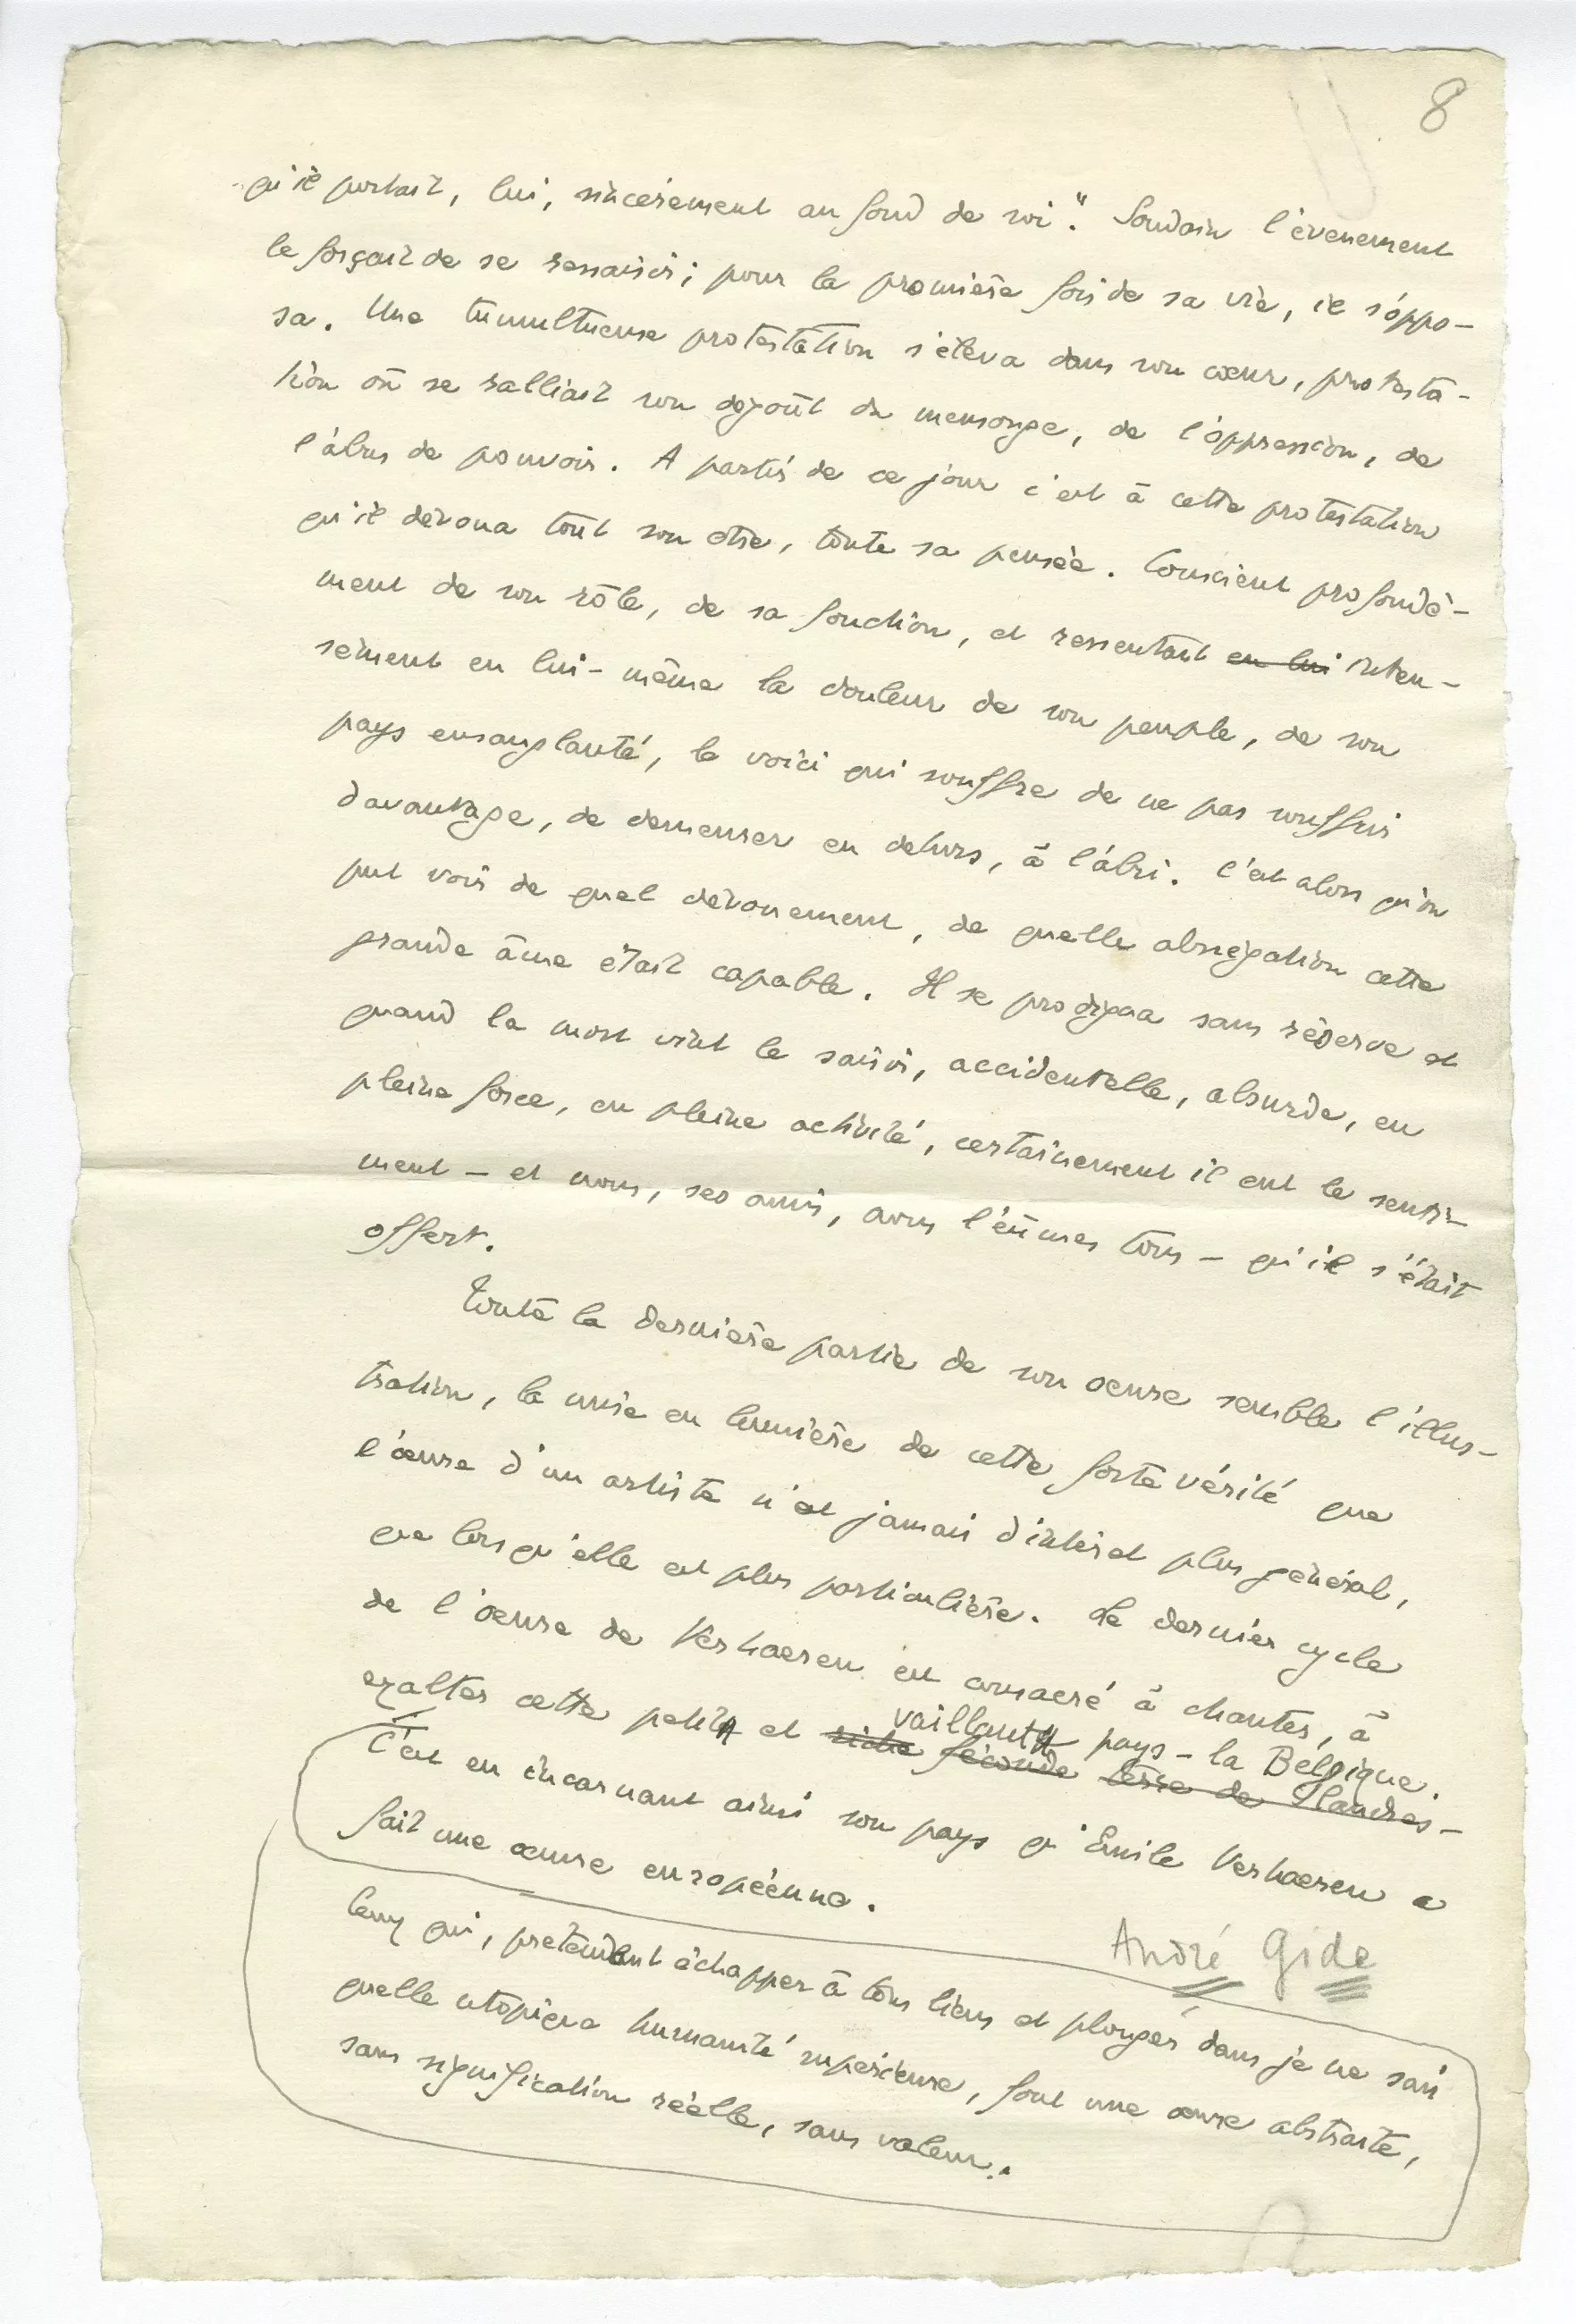 8
qu'il portait, lui, sincèrement au fond de soi". Soudain l'évènement
le forçait de se ressaisir; pour la première fois de sa vie, il s'oppo-
sa. Une tumultueuse protestation s'éleva dans son cœur, protesta-
tion où se ralliait son dégoût du mensonge, de l'oppression, de
l'abus de pouvoir. A partir de ce jour c'est à cette protestation
qu'il dévoua tout son être, toute sa pensée. Conscient profondé-
ment de son rôle, de sa fonction, et ressentant en lui inten-
sément en lui-même la douleur de son peuple, de son
pays ensanglanté, le voici qui souffre de ne pas souffrir
davantage, de demeurer en dehors, à l'abri. C'est alors qu'on
put voir de quel dévouement, de quelle abnégation cette
grande âme était capable. Il se prodigua sans réserve et
quand la mort vint le saisir, accidentelle, absurde, en
pleine force, en pleine activité, certainement il eut le senti-
ment – et nous, ses amis, nous l'eûmes tous – qu'il s'était
offert.
Toute la dernière partie de son œuvre semble l'illus-
tration, la mise en lumière de cette forte vérité que
l'œuvre d'un artiste n'est jamais d'intérêt plus général,
que lorsqu'elle est plus particulière. Le dernier cycle
de l'œuvre de Verhaeren est consacré à chanter, à
exalter cette petit et riche féconde vaillant terre de Flandres – pays – la Belgique.
C'est en incarnant ainsi son pays qu'Emile Verhaeren a
fait une œuvre européenne.
André Gide
Ceux qui, prétendant échapper à tous liens et plonger dans je ne sais
quelle utopique humanité supérieure, font une œuvre abstraite,
sans signification réelle, sans valeur.